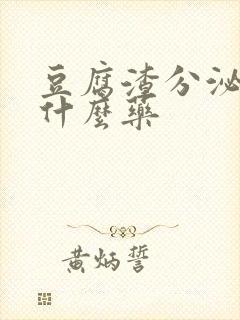 豆腐渣分泌
什麼藥
黄炳誓